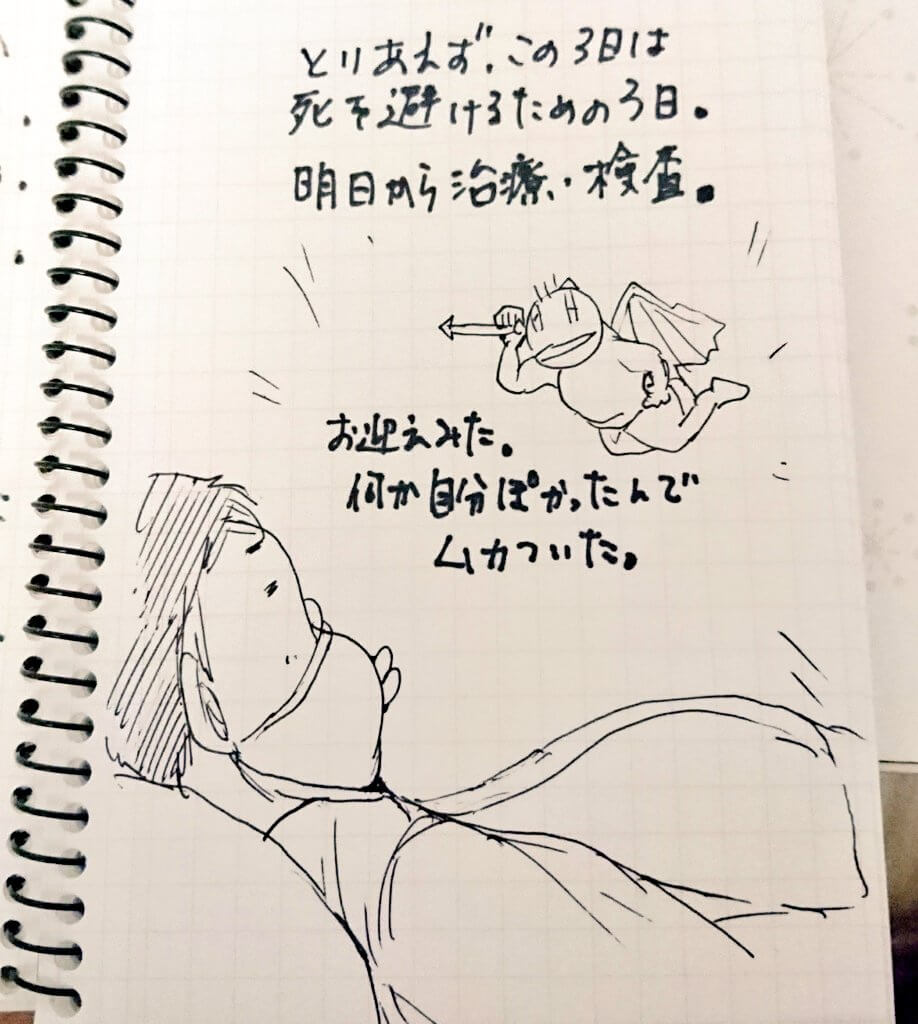 とりあえず、この3日は
死を避けるための3日。
明日から治療・検査。
お迎えみた。
何か自分ぽかったんで
ムカついた。